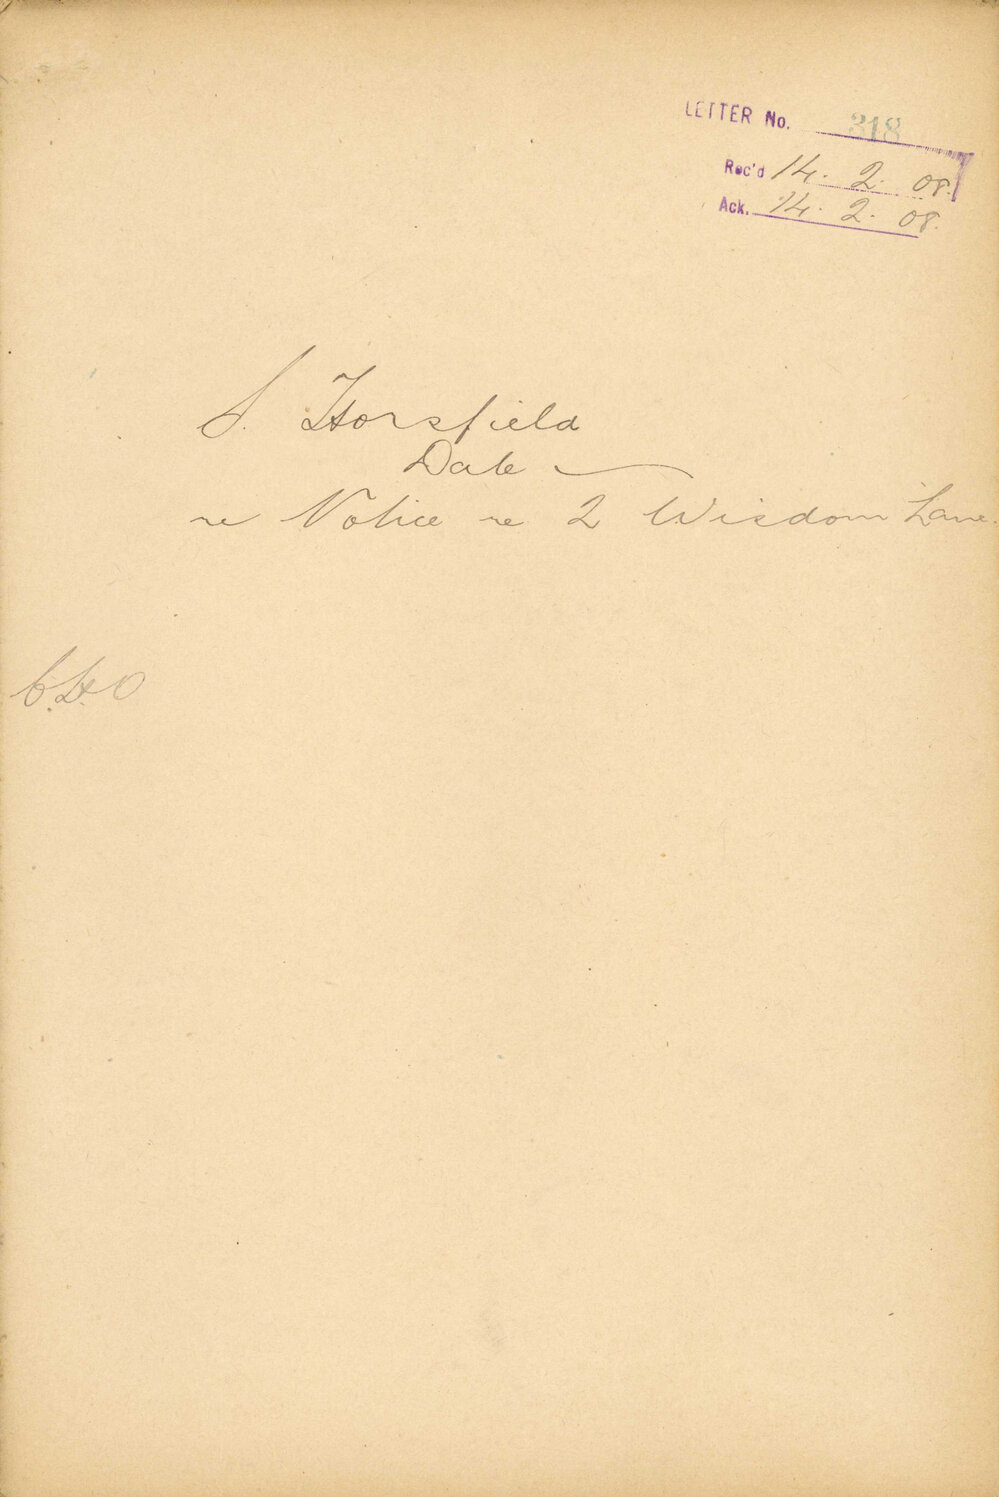 LETTER No. 318
Rec'd 14. 2. 08.
Ack. 14. 2. 08.
S. Horsfield
Date
re Notice re 2 Wisdom Lane.
C.H.O